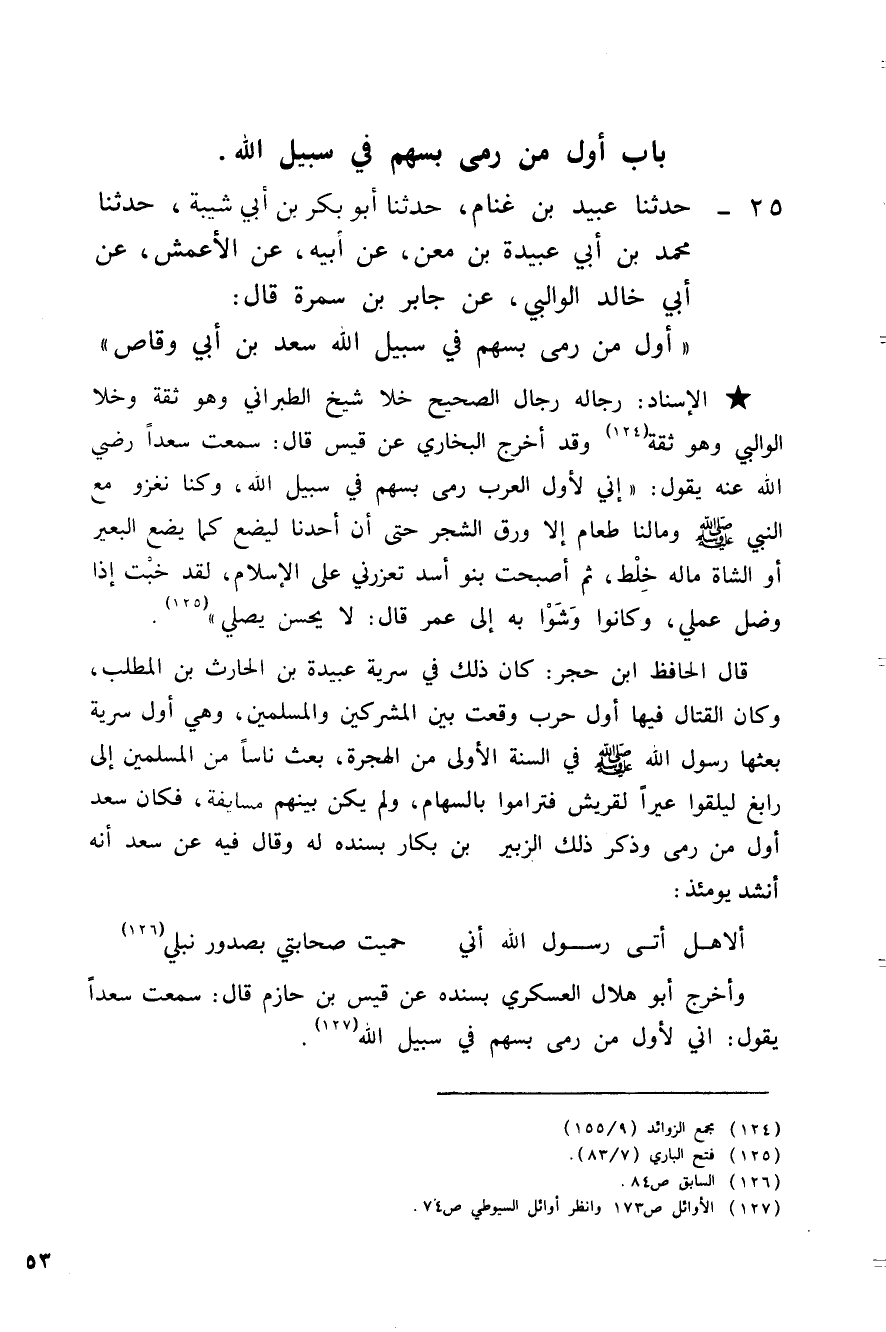 باب أول من رمى بسهم في سبيل الله .
٢٥ - حدثنا عبيد بن غنام، حدثنا أبو بكر بن أبي شيبة ، حدثنا
محمد بن أبي عبيدة بن معن، عن أبيه، عن الأعمش، عن
أبي خالد الوالبي، عن جابر بن سمرة قال:
« أول من رمى بسهم في سبيل الله سعد بن أبي وقاص»
★ الإسناد: رجاله رجال الصحيح خلا شيخ الطبراني وهو ثقة وخلا
الوالبي وهو ثقة(١٢٤) وقد أخرج البخاري عن قيس قال: سمعت سعداً رضي
الله عنه يقول: « إني لأول العرب رمى بسهم في سبيل الله، وكنا نغزو مع
النبي ﷺ ومالنا طعام إلا ورق الشجر حتى أن أحدنا ليضع كما يضع البعير
أو الشاة ماله خِلْط، ثم أصبحت بنو أسد تعزرني على الإسلام، لقد خبْت إذا
وضل عملي، وكانوا وَشَوْا به إلى عمر قال: لا يحسن يصلي»(١٢٥) .
قال الحافظ ابن حجر: كان ذلك في سرية عبيدة بن الحارث بن المطلب،
وكان القتال فيها أول حرب وقعت بين المشركين والمسلمين، وهي أول سرية
بعثها رسول الله ﷺ في السنة الأولى من الهجرة، بعث ناساً من المسلمين إلى
رابغ ليلقوا عيراً لقريش فتراموا بالسهام، ولم يكن بينهم مسايفة، فكان سعد
أول من رمى وذكر ذلك الزبير بن بكار بسنده له وقال فيه عن سعد أنه
أنشد يومئذ:
ألاهـل أتـى رسـول الله أني حميت صحابتي بصدور نبلي(١٢٦)
وأخرج أبو هلال العسكري بسنده عن قيس بن حازم قال: سمعت سعداً
يقول: اني لأول من رمى بسهم في سبيل الله(١٢٧) .
(١٢٤) مجمع الزوائد (١٥٥/٩)
(١٢٥) فتح الباري (٨٣/٧).
(١٢٦) السابق ص٨٤ .
(١٢٧) الأوائل ص١٧٣ وانظر أوائل السيوطي ص٧٤ .
٥٣